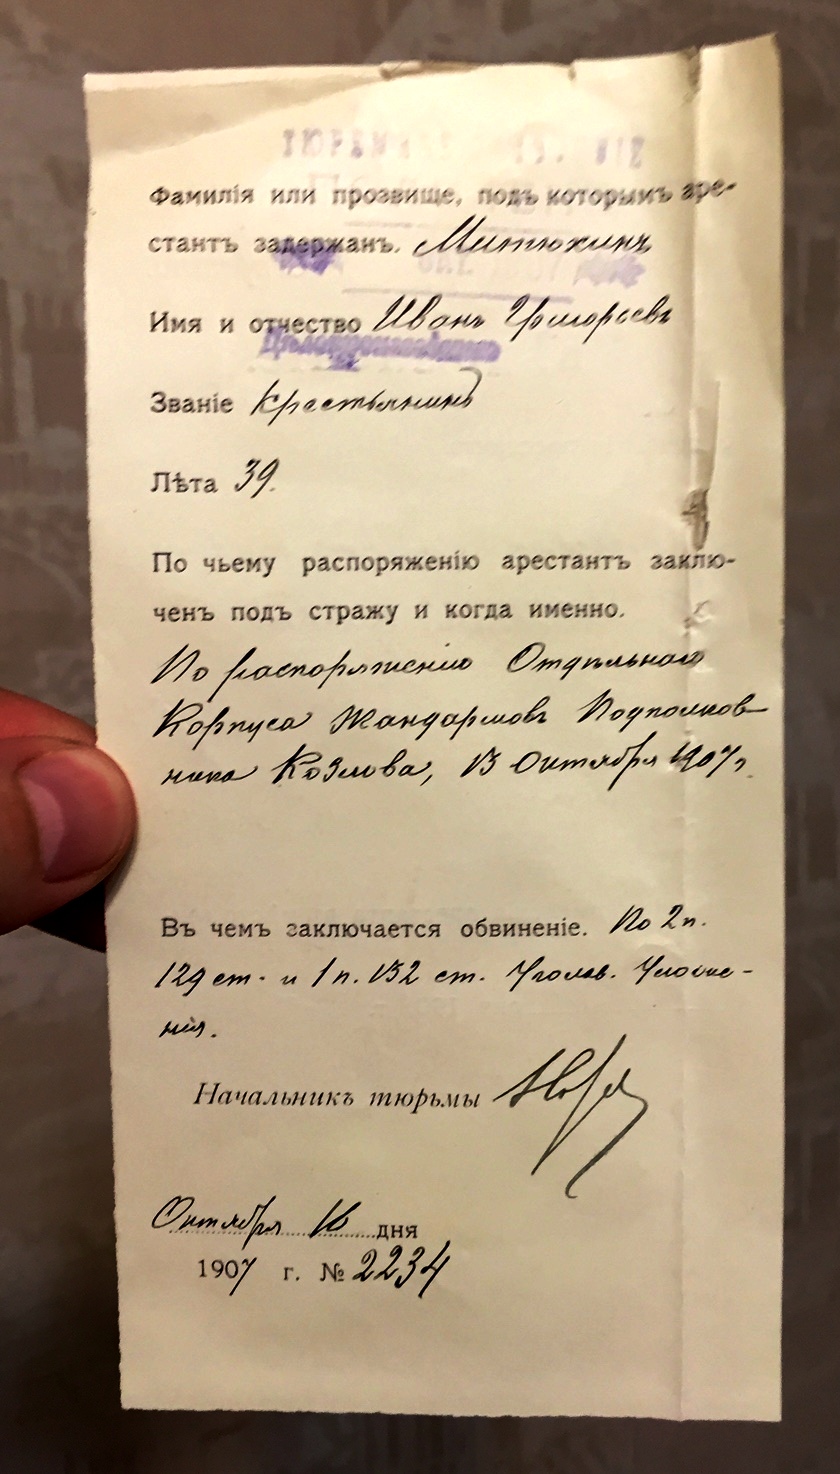 Фамилія или прозвище, подъ которымъ аре-
стантъ задержанъ. Митюхинъ
Имя и отчество Иванъ Григорьевъ
Званіе Крестьянинъ
Лѣта 39.
По чьему распоряженію арестантъ заклю-
ченъ подъ стражу и когда именно.
По распоряженію Отдѣльнаго
Корпуса Жандармовъ Подполков-
ника Козлова, 13 Октября 1907 г.
Въ чемъ заключается обвиненіе. По 2 п.
129 ст. и 1 п. 132 ст. Уголов. Уложе-
нія.
Начальникъ тюрьмы
Октября 16 дня
1907 г. № 2234